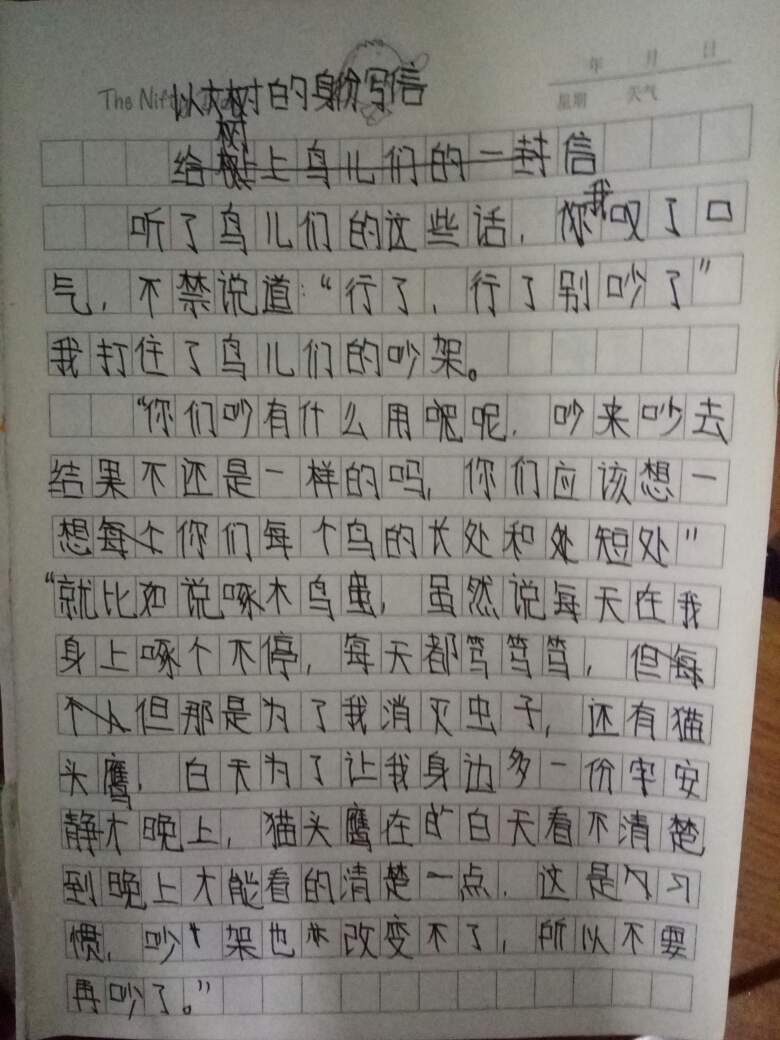 The Nift
年 月 日
星期 天气
以大树的身份写信
树
给树上鸟儿们的一封信
听了鸟儿们的这些话，你我叹了口
气，不禁说道：“行了，行了别吵了”
我打住了鸟儿们的吵架。
“你们吵有什么用呢，吵来吵去
结果不还是一样的吗，你们应该想一
想每个你们每个鸟的长处和处短处”
“就比如说啄木鸟虽，虽然说每天在我
身上啄个不停，每天都笃笃笃，但每
个人但那是为了我消灭虫子，还有猫
头鹰，白天为了让我身边多一份安
静才晚上，猫头鹰在白天看不清楚
到晚上才能看的清楚一点，这是习
惯，吵架也改变不了，所以不要
再吵了。”